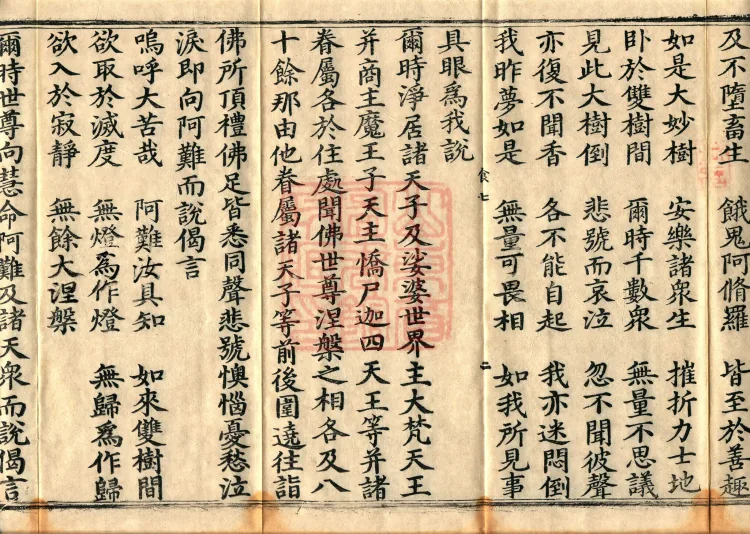 及不墮畜生 餓鬼阿脩羅 皆至於善趣
如是大妙樹 安樂諸衆生 摧折力士地
卧於雙樹間 爾時千數衆 無量不思議
見此大樹倒 悲號而哀泣 忽不聞彼聲
亦復不聞香 各不能自起 我亦迷悶倒
我昨夢如是 無量可畏相 如我所見事
食七 二
具眼爲我說
爾時淨居諸天子及娑婆世界主大梵天王
并商主魔王子天主憍尸迦四天王等并諸
眷屬各於住處聞佛世尊涅槃之相各及八
十餘那由他眷屬諸天子等前後圍遶往詣
佛所頂禮佛足皆悉同聲悲號懊惱憂愁泣
淚即向阿難而說偈言
嗚呼大苦哉 阿難汝具知 如來雙樹間
欲取於滅度 無燈爲作燈 無歸爲作歸
欲入於寂靜 無餘大涅槃
爾時世尊向慧命阿難及諸天衆而說偈言